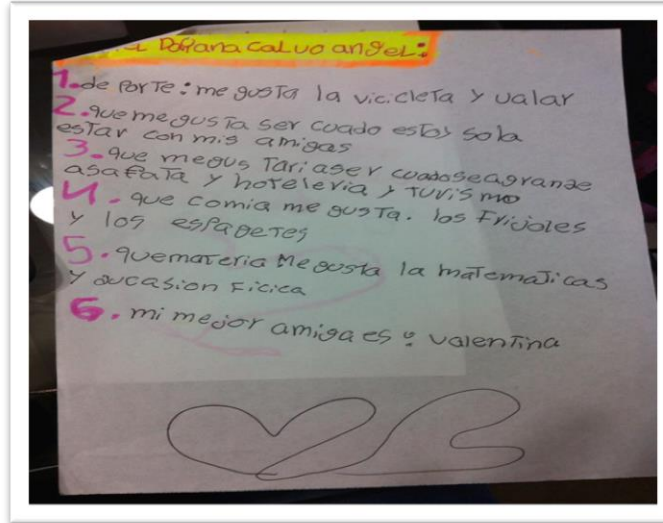 Dayana calvo angel:
1. de porte: me gusta la vicicleta y valar
2. que me gusta ser cuado estoy sola
estar con mis amigas
3. que megus tariaser cuadoseagrande
asafata y hoteleria y turismo
4. que comia me gusta. los frijoles
y los espagetes
5. quemateria me gusta la matematicas
y aucasion ficica
6. mi mejor amiga es: valentina